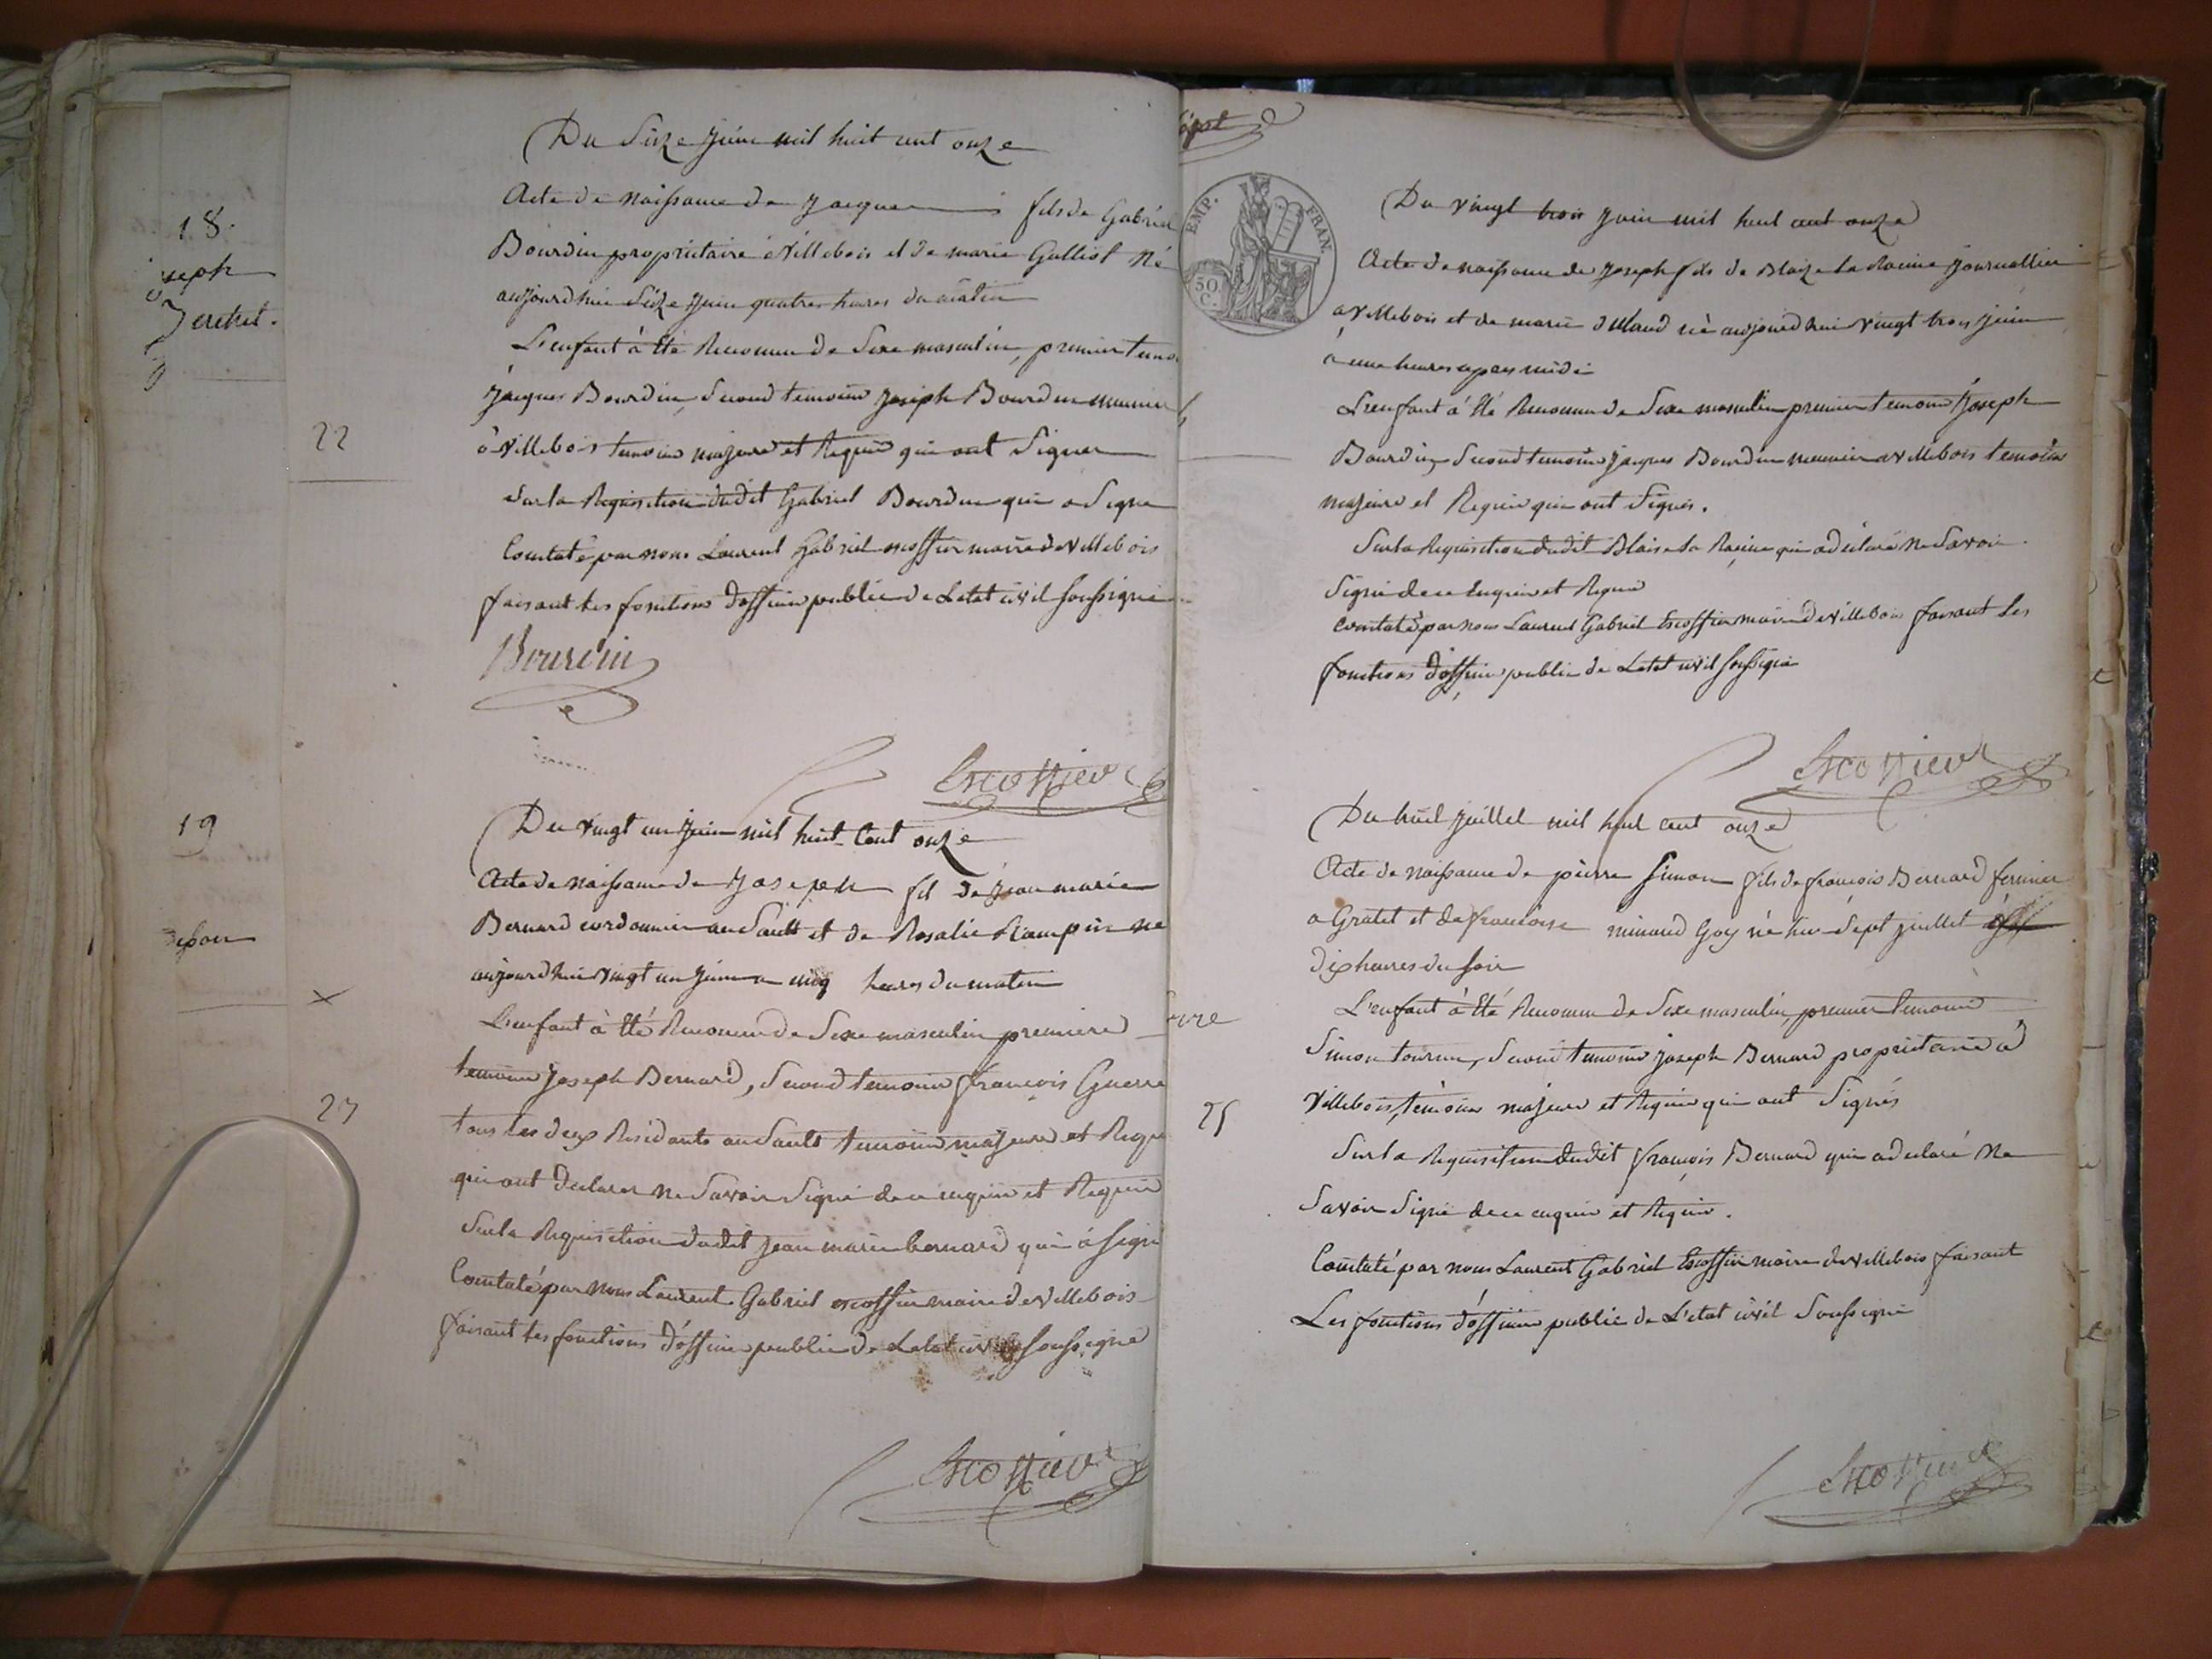 18.
22
19
23
Du Seize Juin mil huit cent onze
Acte de naissance de Jacques fils de Gabriel
Bourdin propriétaire à Villebois et de marie Galliot Né
aujourdhui Seize Juin quatre heures du matin
L'enfant à Eté Reconnu de Sexe masculin, premier
Jacques Bourdin, Second temoins Joseph Bourdin meunier
à Villebois temoins majeurs et Requis qui ont Signer
Sur la Requisition dudit Gabriel Bourdin qui a Signe
Constaté par nous Laurent Gabriel escoffier maire de Villebois
faisant les fonctions d'officier public de Letat civil soussigné
Bourdin
Escoffier
Du vingt un Juin mil huit Cent onze
Acte de naissance de Joseph fil de Jean marie
Bernard cordonnier au Sault et de Rosalie Rampin né
aujourdhui vingt un Juin a cinq heures du matin
L'enfant à Eté Reconnu de Sexe masculin premiere
temoins Joseph Bernard, Second temoins françois Guerre
tous les deux Residants au Sault temoins majeurs et
qui ont declarer ne Savoir Signé de ce enquis et Requis
Sur la Requisition dudit Jean marie bernard qui à signé
Constaté par nous Laurent Gabriel escoffier maire de Villebois
faisant les fonctions d'officier public de Letat civil soussigné
Escoffier
EMP. FRAN.
50 C.
Du vingt trois Juin mil huit cent onze
Acte de naissance de Joseph fils de Blaize la Racine Journallier
a Villebois et de marie né aujourd'hui vingt trois Juin
à une heures apres midi
L'enfant à Eté Reconnu de Sexe masculin premier temoins Joseph
Bourdin, Second temoins Jacques Bourdin meunier a Villebois temoins
majeurs et Requis qui ont Signés.
Sur la Requisition dudit Blaise la Racine qui a déclaré Ne Savoir
Signé de ce Enquis et Requis
Constaté par nous Laurent Gabriel Escoffier maire de Villebois faisant les
fonctions d'officier public de Letat civil soussigné
Escoffier
Du huit Juillet mil huit cent onze
Acte de naissance de pierre Simon fils de francois Bernard fermier
a Gratet et de francoise minaud Goy né hier Sept juillet à
dix heures du soir
L'enfant à Eté Reconnu de Sexe masculin, premier temoins
Simon tournier, Second temoins Joseph Bernard propriétaire à
Villebois, temoins majeurs et Requis qui ont Signés
Sur la Requisition dudit françois Bernard qui a declaré Ne
Savoir Signé de ce enquis et Requis.
Constaté par nous Laurent Gabriel Escoffier maire de Villebois faisant
Les fonctions d'officier public de L'etat civil Soussigné
25
Escoffier